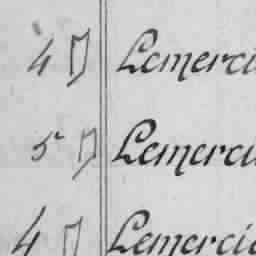 4 Lemerci
5 Lemerci
4 Lemercie